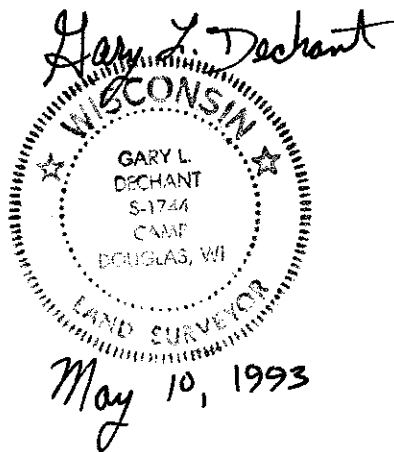 Gary L. Dechant
WISCONSIN
GARY L.
DECHANT
S-1744
CAMP
DOUGLAS, WI
LAND SURVEYOR
May 10, 1993